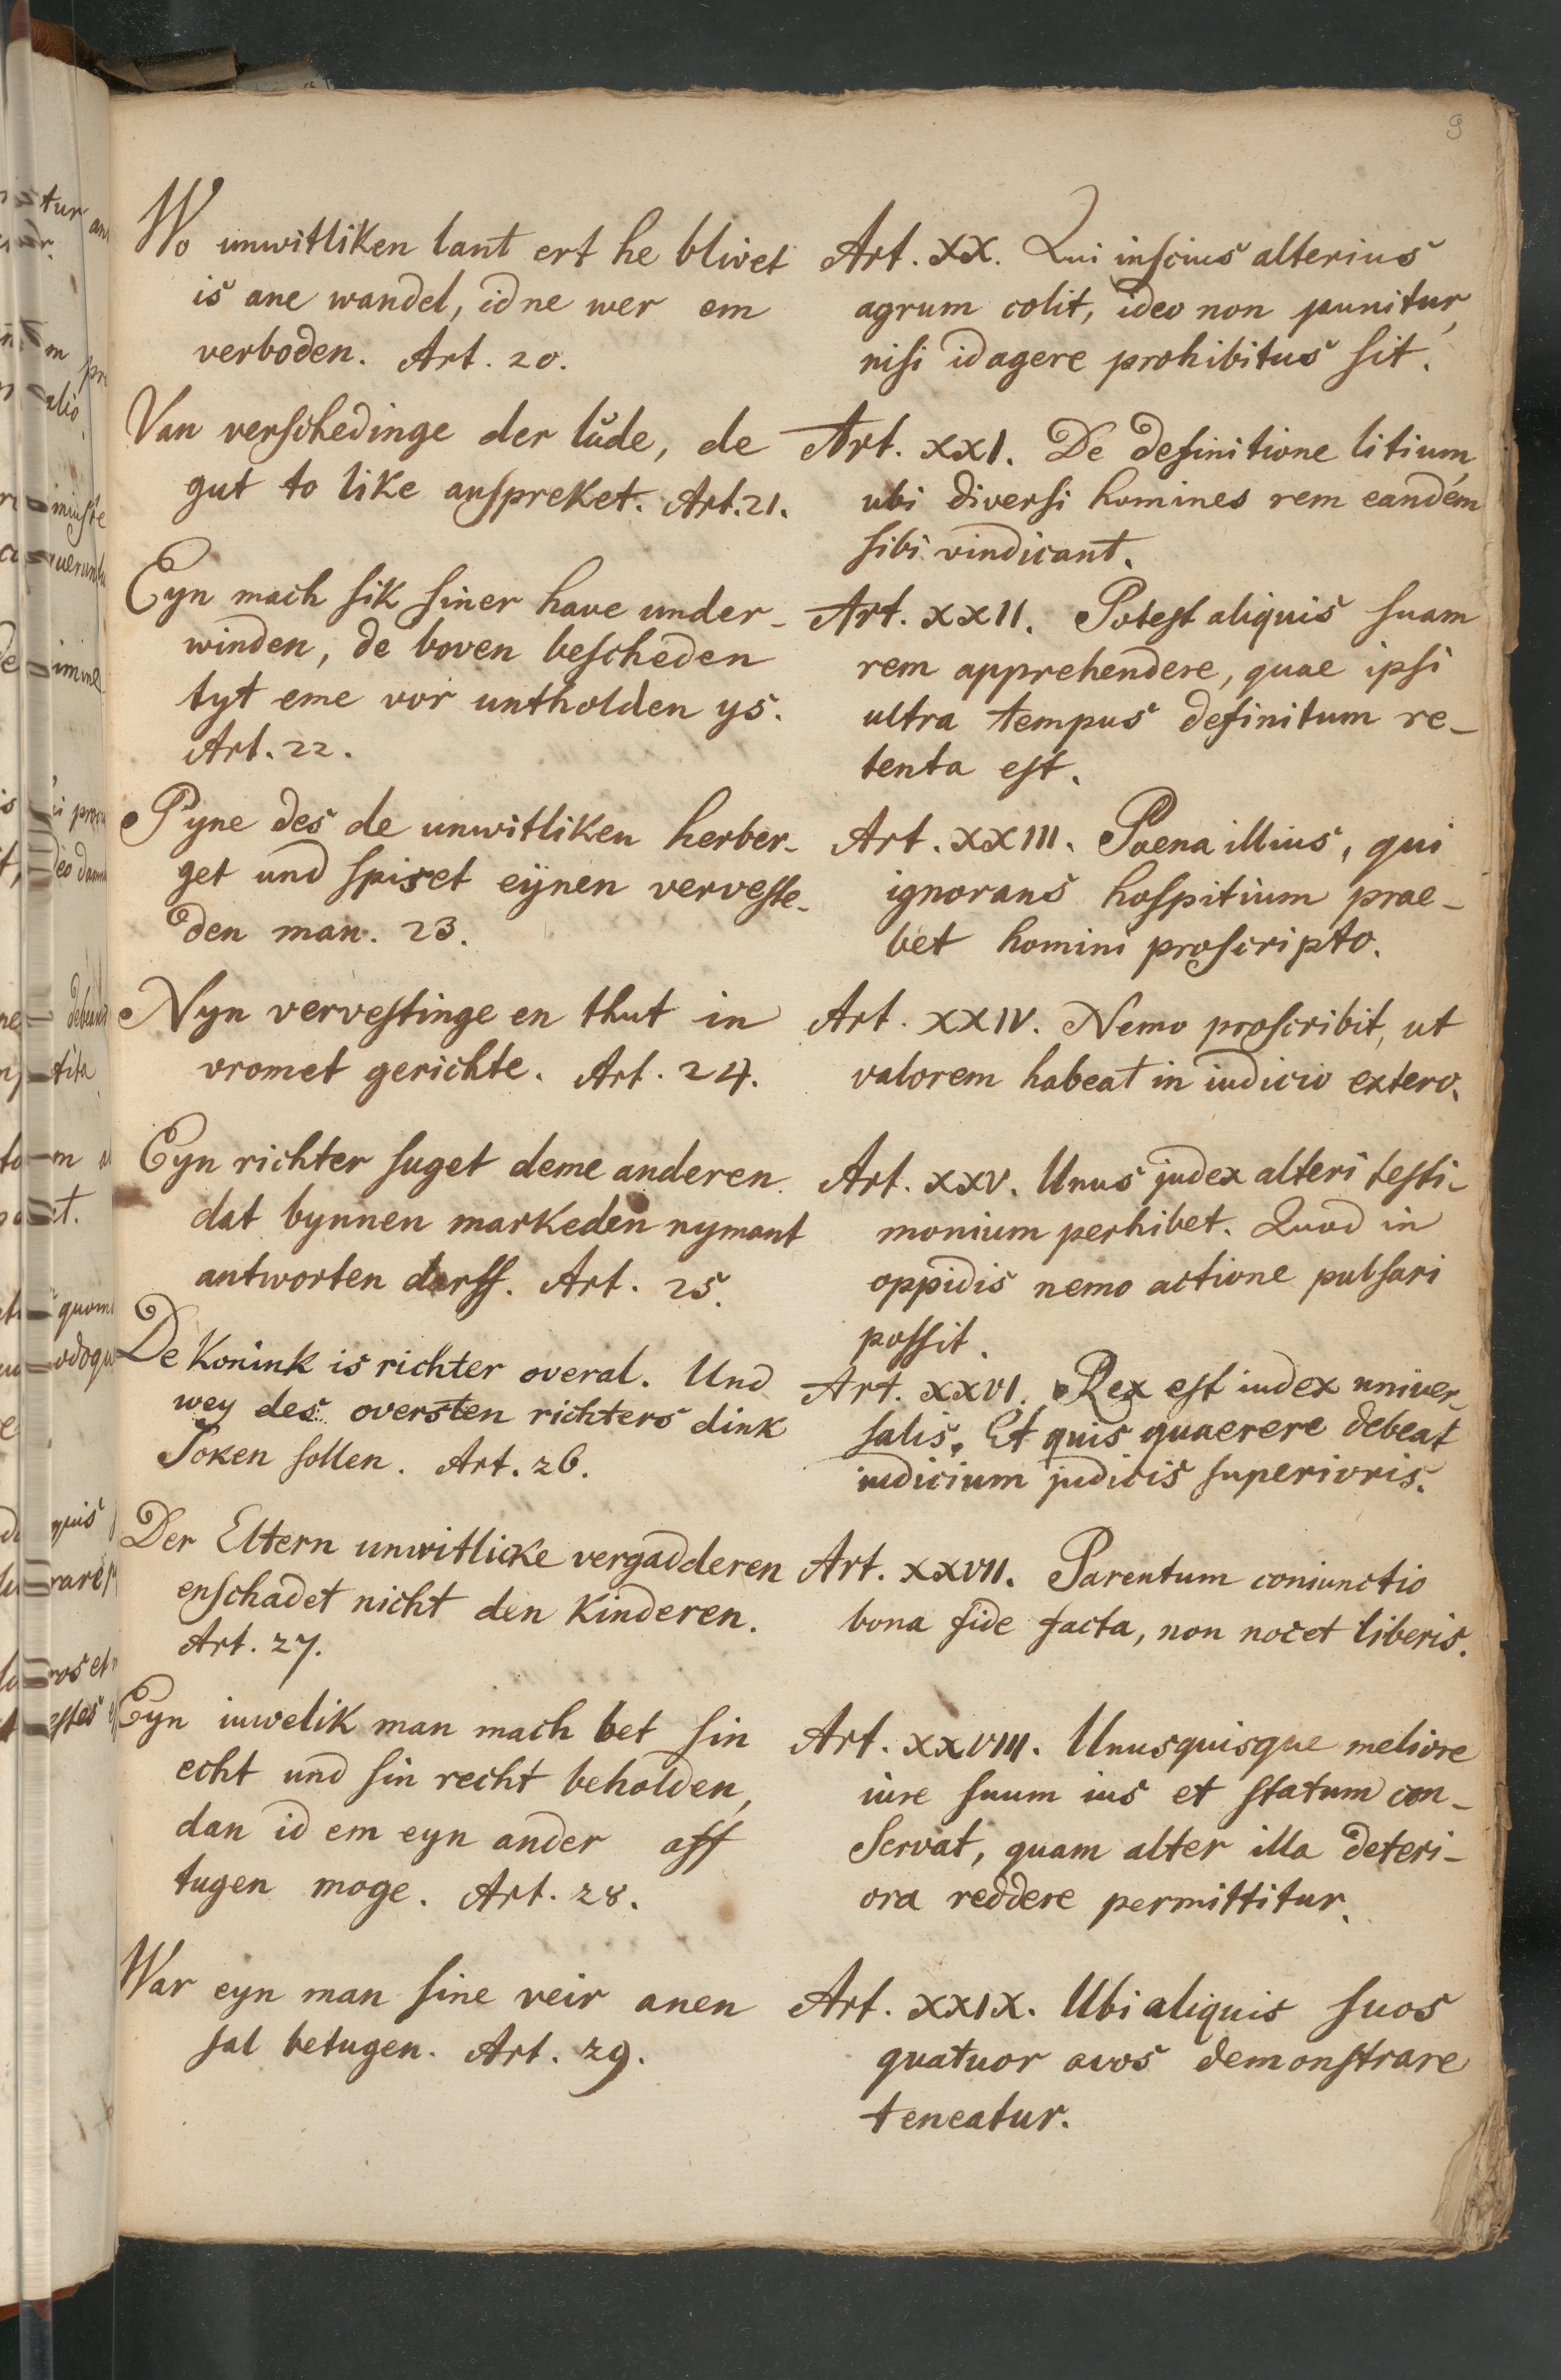 9
Wo unwitliken lant ert he blivet
is ane wandel, id ne wer em
verboden. Art. 20.
Van verschedinge der lude, de
gut to like anspreket. Art. 21.
Eyn mach sik siner have under-
winden, de boven bescheden
tyt eme vor untholden ys.
Art. 22.
Pyne des de unwitliken herber-
get und spiset eynen verveste-
den man. 23.
Nyn vervestinge en thut in
vromet gerichte. Art. 24.
Eyn richter suget deme anderen
dat bynnen markeden nymant
antworten darff. Art. 25.
De Konink is richter overal. Und
wey des oversten richters dink
Soken sollen. Art. 26.
Der Eltern unwitlicke vergadderen
enschadet nicht den Kinderen.
Art. 27.
Eyn iuwelik man mach bet sin
echt und sin recht beholden,
dan id em eyn ander aff
tugen moge. Art. 28.
War eyn man sine veir anen
sal betugen. Art. 29.
Art. XX. Qui inscius alterius
agrum colit, ideo non punitur,
nisi id agere prohibitus sit.
Art. XXI. De definitione litium,
ubi diversi homines rem eandem
sibi vindicant.
Art. XXII. Potest aliquis suam
rem apprehendere, quae ipsi
ultra tempus definitum re-
tenta est.
Art. XXIII. Poena illius, qui
ignorans hospitium prae-
bet homini proscripto.
Art. XXIV. Nemo proscribit, ut
valorem habeat in iudicio extero.
Art. XXV. Unus judex alteri testi-
monium perhibet. Quod in
oppidis nemo actione pulsari
possit.
Art. XXVI. Rex est iudex univer-
salis. Et quis quaerere debeat
iudicium judicis superioris.
Art. XXVII. Parentum coniunctio
bona fide facta, non nocet liberis.
Art. XXVIII. Unusquisque meliore
iure suum ius et statum con-
servat, quam alter illa deteri-
ora reddere permittitur.
Art. XXIX. Ubi aliquis suos
quatuor avos demonstrare
teneatur.